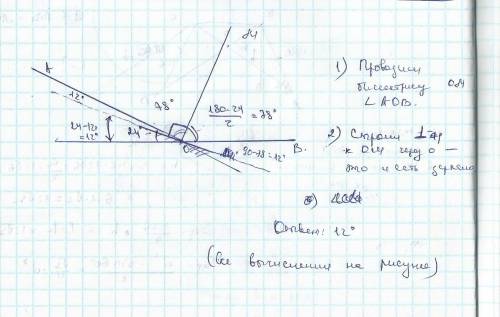 М
А
12°
78°
180-24
2
=78°
24-12
=12°
24°
О
В.
90-78=12°
1) Проводим
биссектрису ОМ
∠ АОВ.
2) Строим ⊥
к ОМ через О —
это и есть зеркало
3)
Ответ: 12°
(все вычисления на рисунке)